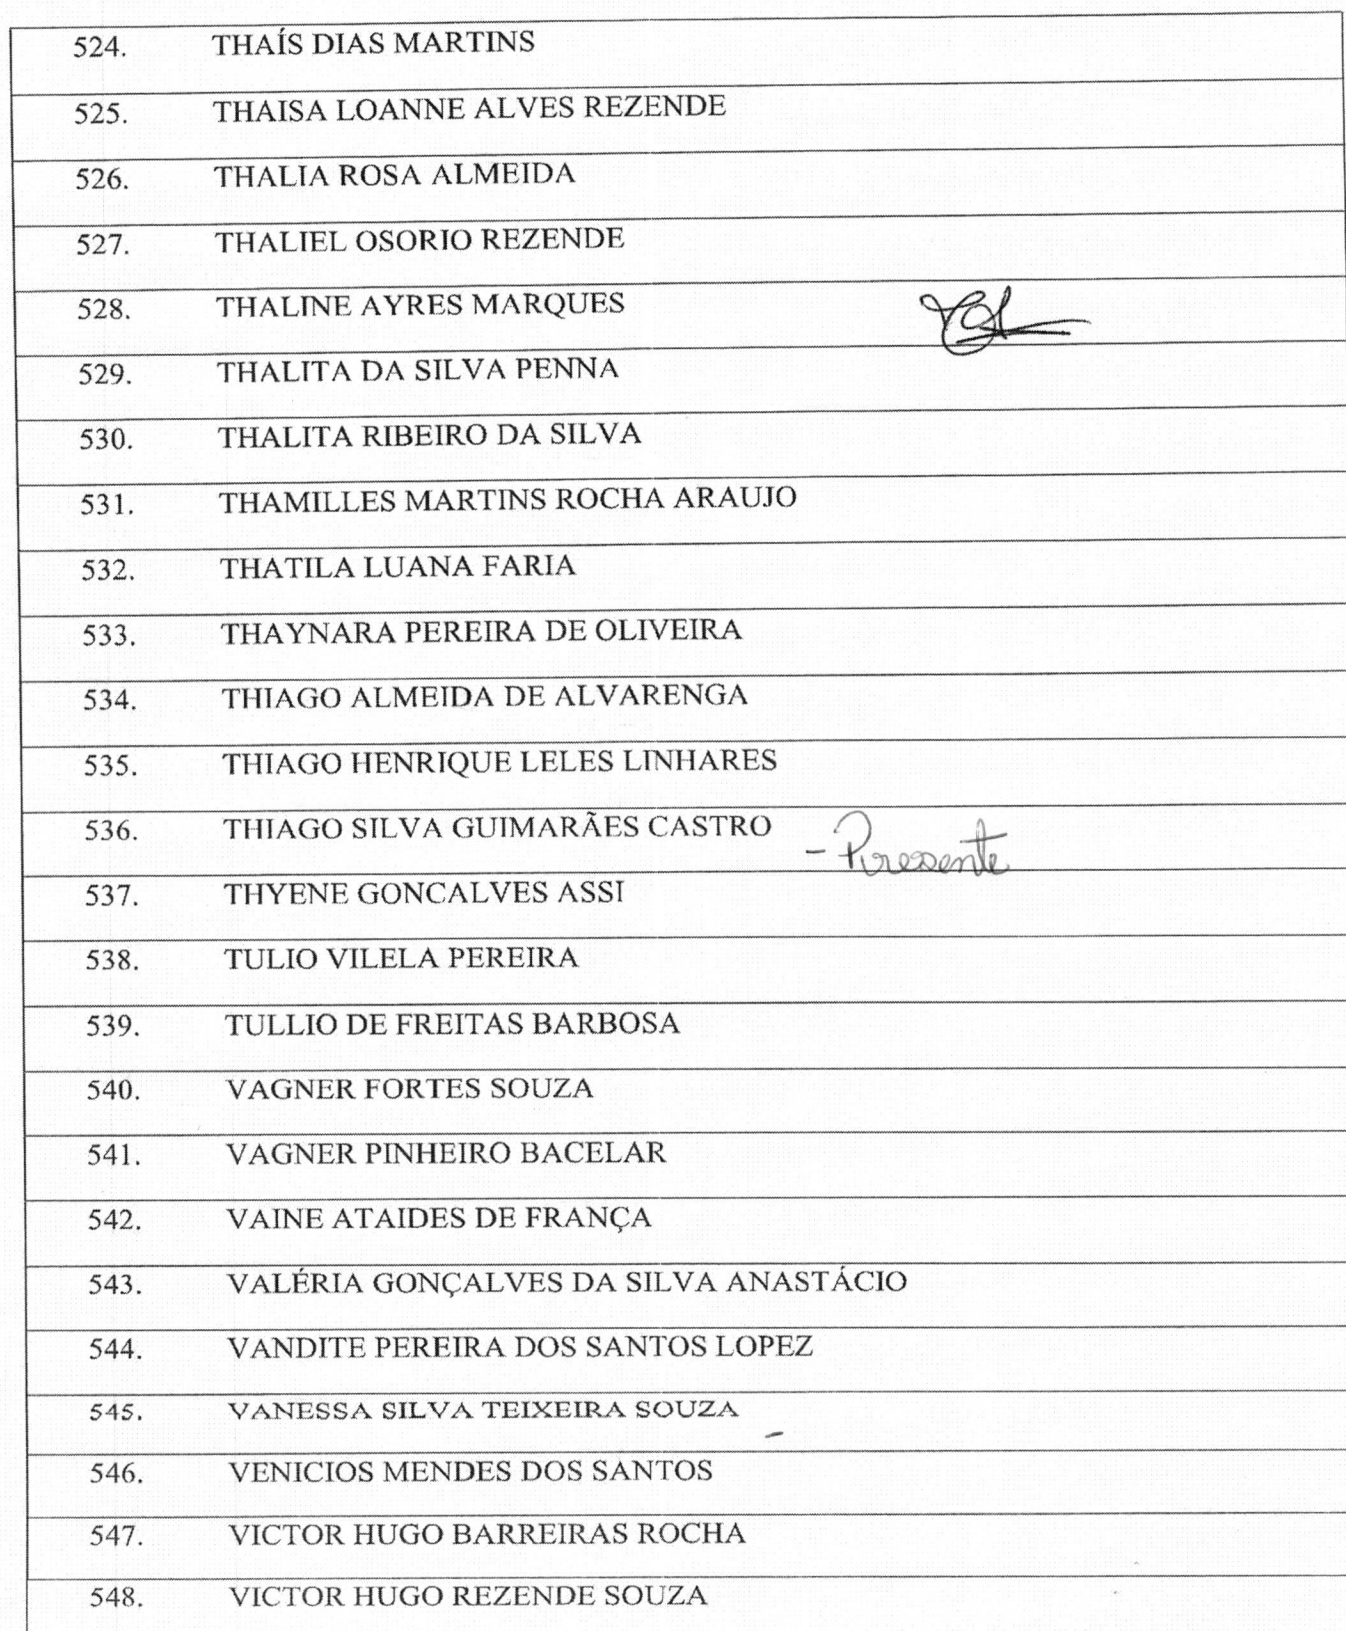 524. THAÍS DIAS MARTINS
525. THAISA LOANNE ALVES REZENDE
526. THALIA ROSA ALMEIDA
527. THALIEL OSORIO REZENDE
528. THALINE AYRES MARQUES
529. THALITA DA SILVA PENNA
530. THALITA RIBEIRO DA SILVA
531. THAMILLES MARTINS ROCHA ARAUJO
532. THATILA LUANA FARIA
533. THAYNARA PEREIRA DE OLIVEIRA
534. THIAGO ALMEIDA DE ALVARENGA
535. THIAGO HENRIQUE LELES LINHARES
536. THIAGO SILVA GUIMARÃES CASTRO - Presente
537. THYENE GONCALVES ASSI
538. TULIO VILELA PEREIRA
539. TULLIO DE FREITAS BARBOSA
540. VAGNER FORTES SOUZA
541. VAGNER PINHEIRO BACELAR
542. VAINE ATAIDES DE FRANÇA
543. VALÉRIA GONÇALVES DA SILVA ANASTÁCIO
544. VANDITE PEREIRA DOS SANTOS LOPEZ
545. VANESSA SILVA TEIXEIRA SOUZA -
546. VENICIOS MENDES DOS SANTOS
547. VICTOR HUGO BARREIRAS ROCHA
548. VICTOR HUGO REZENDE SOUZA